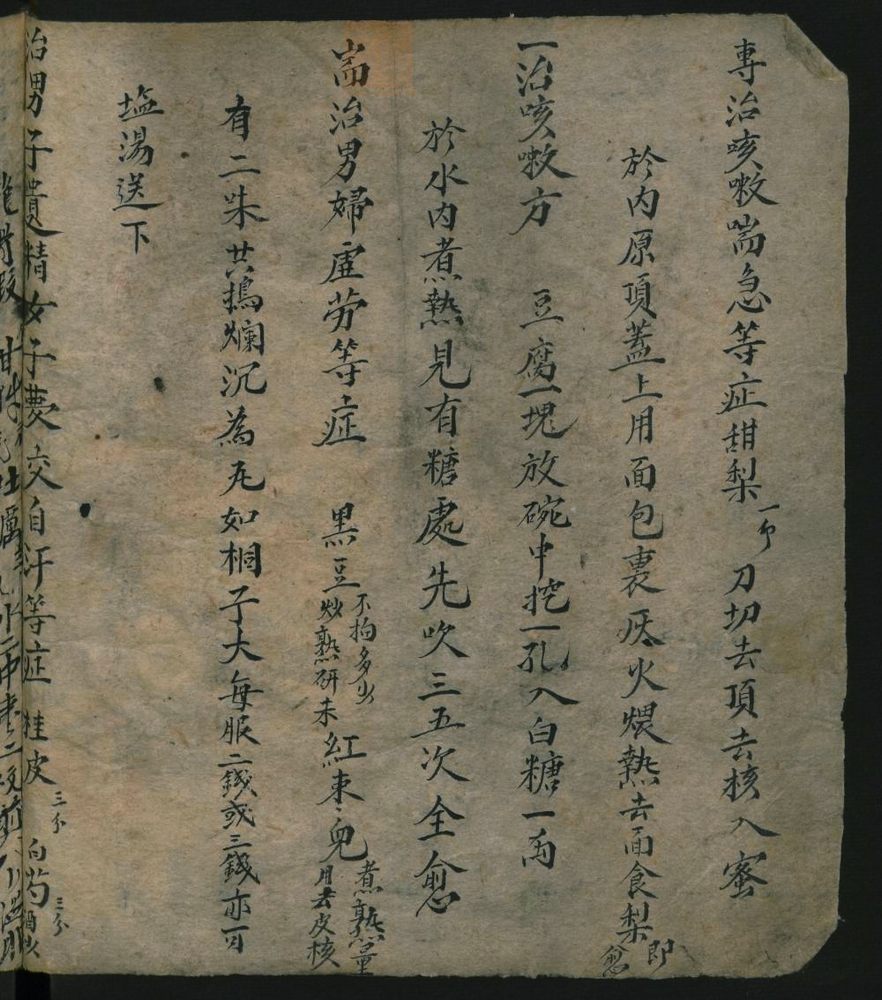 專治咳嗽喘急等症甜梨一个刀切去頂去核入蜜
於内原頂蓋上用面包裹灰火煨熟去面食梨即愈
一治咳嗽方 豆腐一塊放碗中挖一孔入白糖一両
於水内煮熱見有糖處先吹三五次全愈
耑治男婦虛劳等症 黑豆不拘多少炒熟研末紅棗煮熟量用去皮核
有二味共搗爛沉為丸如桐子大每服二錢或三錢亦可
塩湯送下
治男子遺精女子夢交自汗等症 桂皮三分 白芍三分